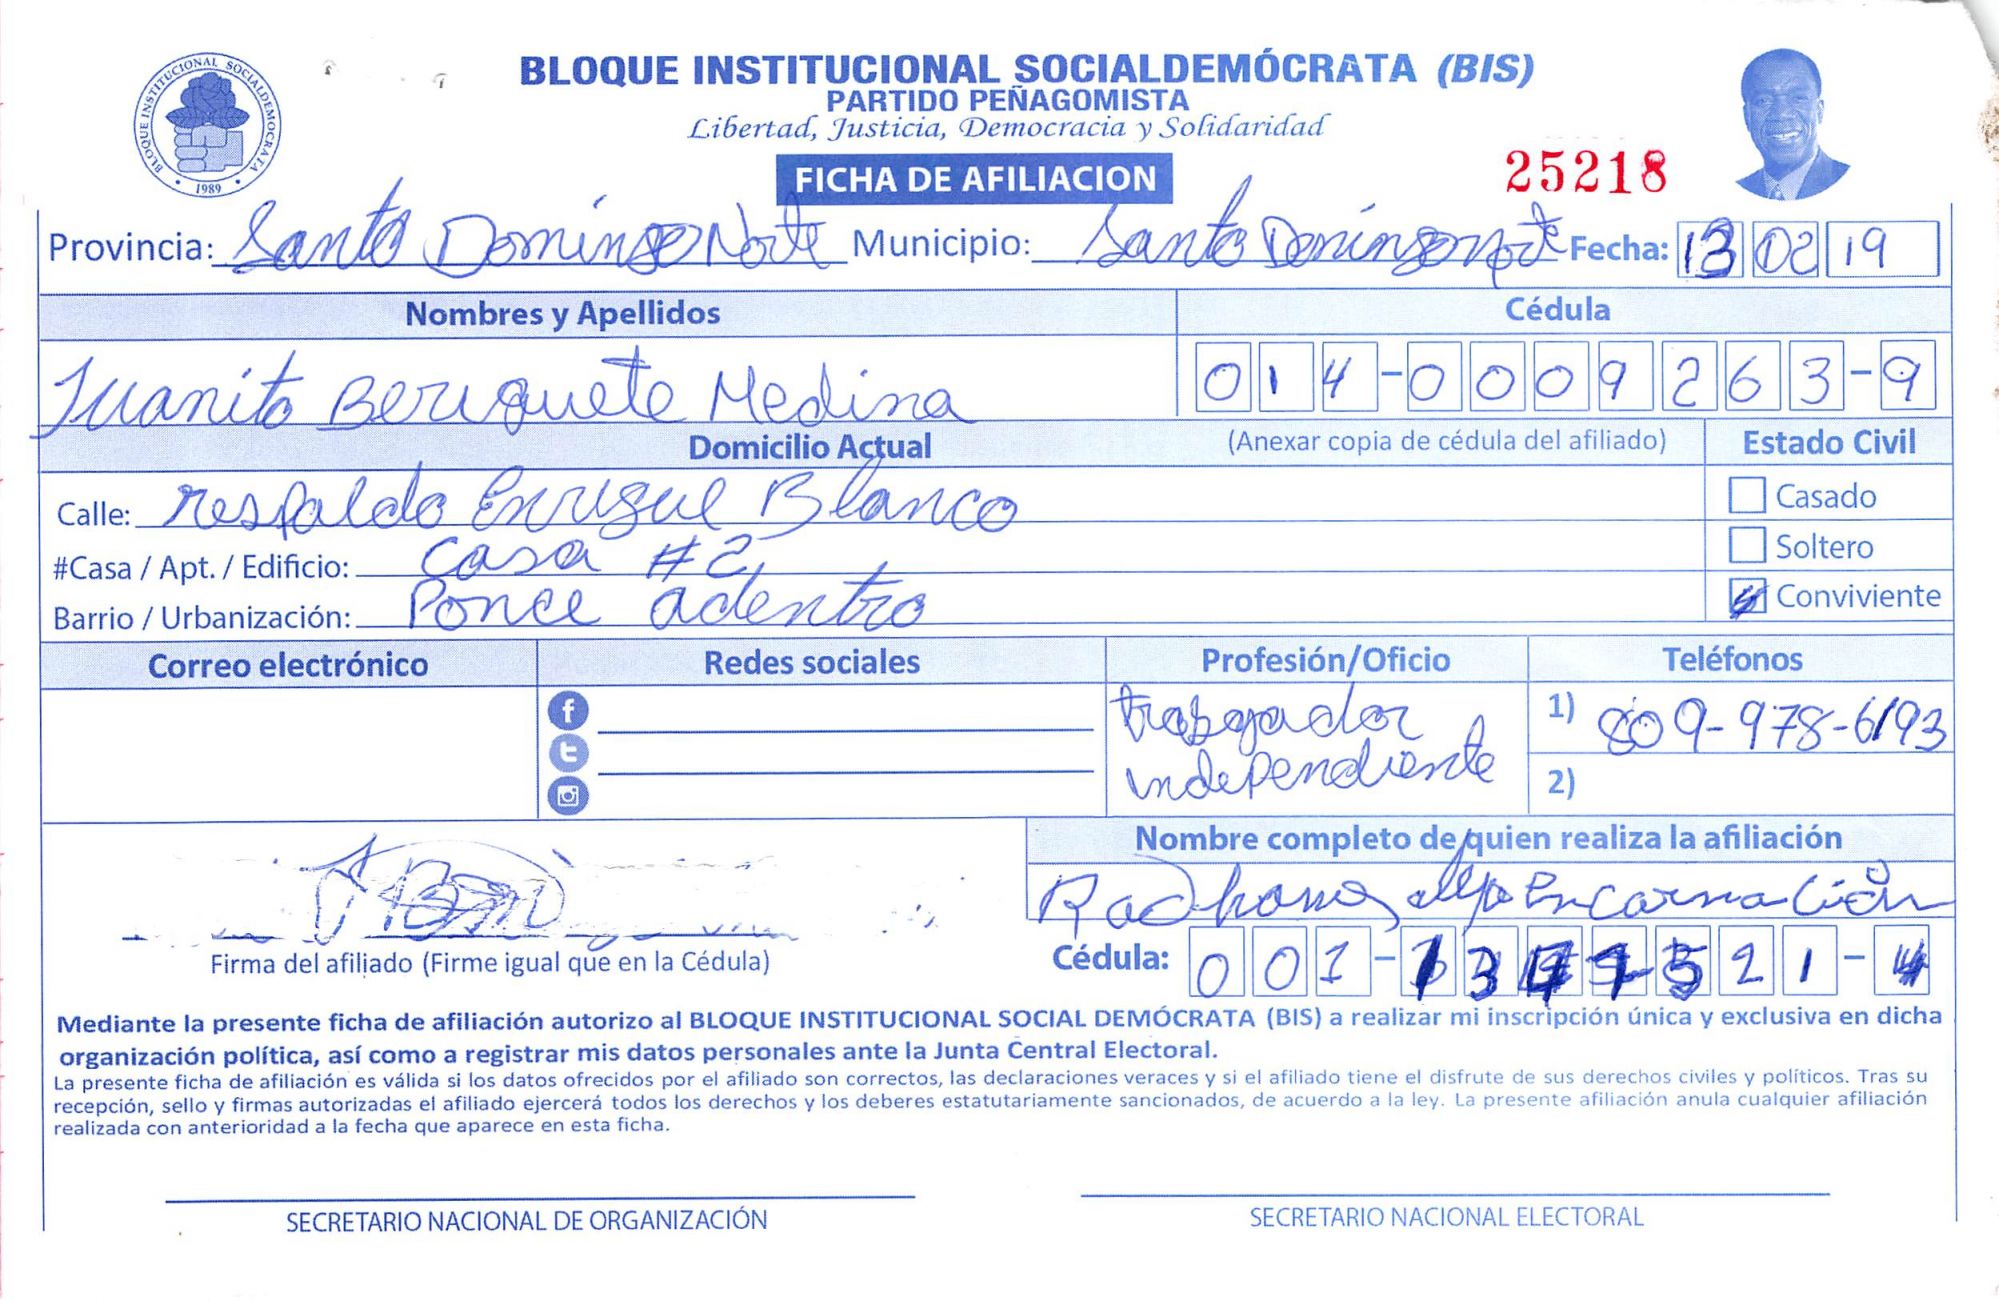 BLOQUE INSTITUCIONAL SOCIALDEMOCRATA
1989
BLOQUE INSTITUCIONAL SOCIALDEMÓCRATA (BIS)
PARTIDO PEÑAGOMISTA
Libertad, Justicia, Democracia y Solidaridad
FICHA DE AFILIACION
25218
Provincia: Santo Domingo Norte Municipio: Santo Domingo Norte Fecha: 13 02 19
Nombres y Apellidos Cédula
Juanito Beriguete Medina 014-0009263-9
Domicilio Actual (Anexar copia de cédula del afiliado) Estado Civil
Calle: respaldo Enrique Blanco
Casado
#Casa / Apt. / Edificio: casa #2
Soltero
Barrio / Urbanización: Ponce adentro
Conviviente
Correo electrónico Redes sociales Profesión/Oficio Teléfonos
trabgador
independiente
1) 809-978-6193
2)
Nombre completo de quien realiza la afiliación
Encarnación
Firma del afiliado (Firme igual que en la Cédula)
Cédula: 001- 21-4
Mediante la presente ficha de afiliación autorizo al BLOQUE INSTITUCIONAL SOCIAL DEMÓCRATA (BIS) a realizar mi inscripción única y exclusiva en dicha
organización política, así como a registrar mis datos personales ante la Junta Central Electoral.
La presente ficha de afiliación es válida si los datos ofrecidos por el afiliado son correctos, las declaraciones veraces y si el afiliado tiene el disfrute de sus derechos civiles y políticos. Tras su
recepción, sello y firmas autorizadas el afiliado ejercerá todos los derechos y los deberes estatutariamente sancionados, de acuerdo a la ley. La presente afiliación anula cualquier afiliación
realizada con anterioridad a la fecha que aparece en esta ficha.
SECRETARIO NACIONAL DE ORGANIZACIÓN
SECRETARIO NACIONAL ELECTORAL